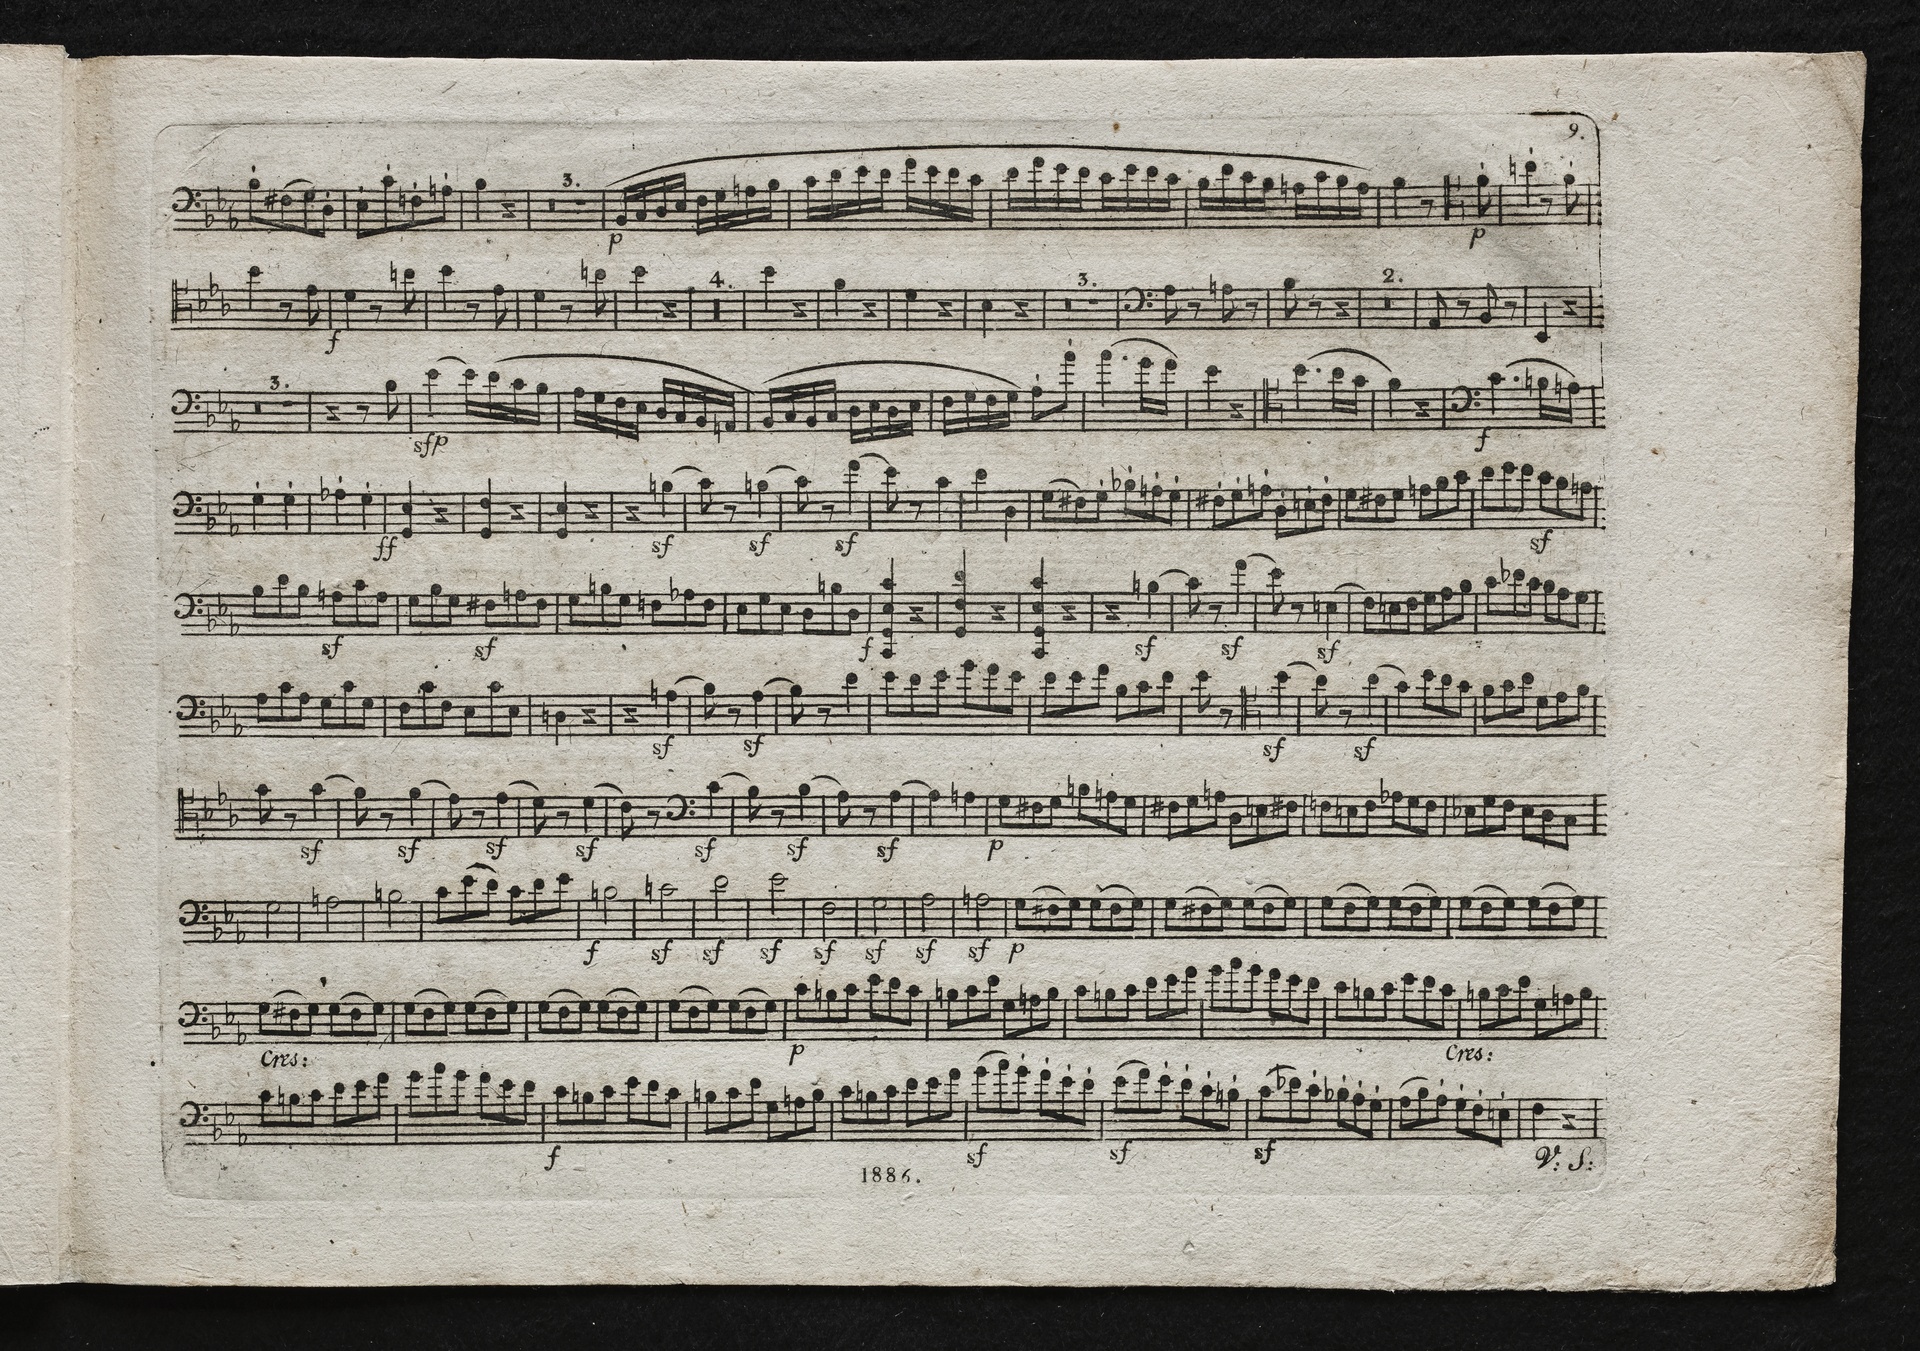 9.
3.
p p
4. 3. 2.
f
3.
sfp f
ff sf sf sf sf
sf sf f sf sf sf
sf sf sf sf
sf sf sf sf sf sf sf p
f sf sf sf sf sf sf sf p
Cres: p Cres:
f sf sf sf V: S:
1886.